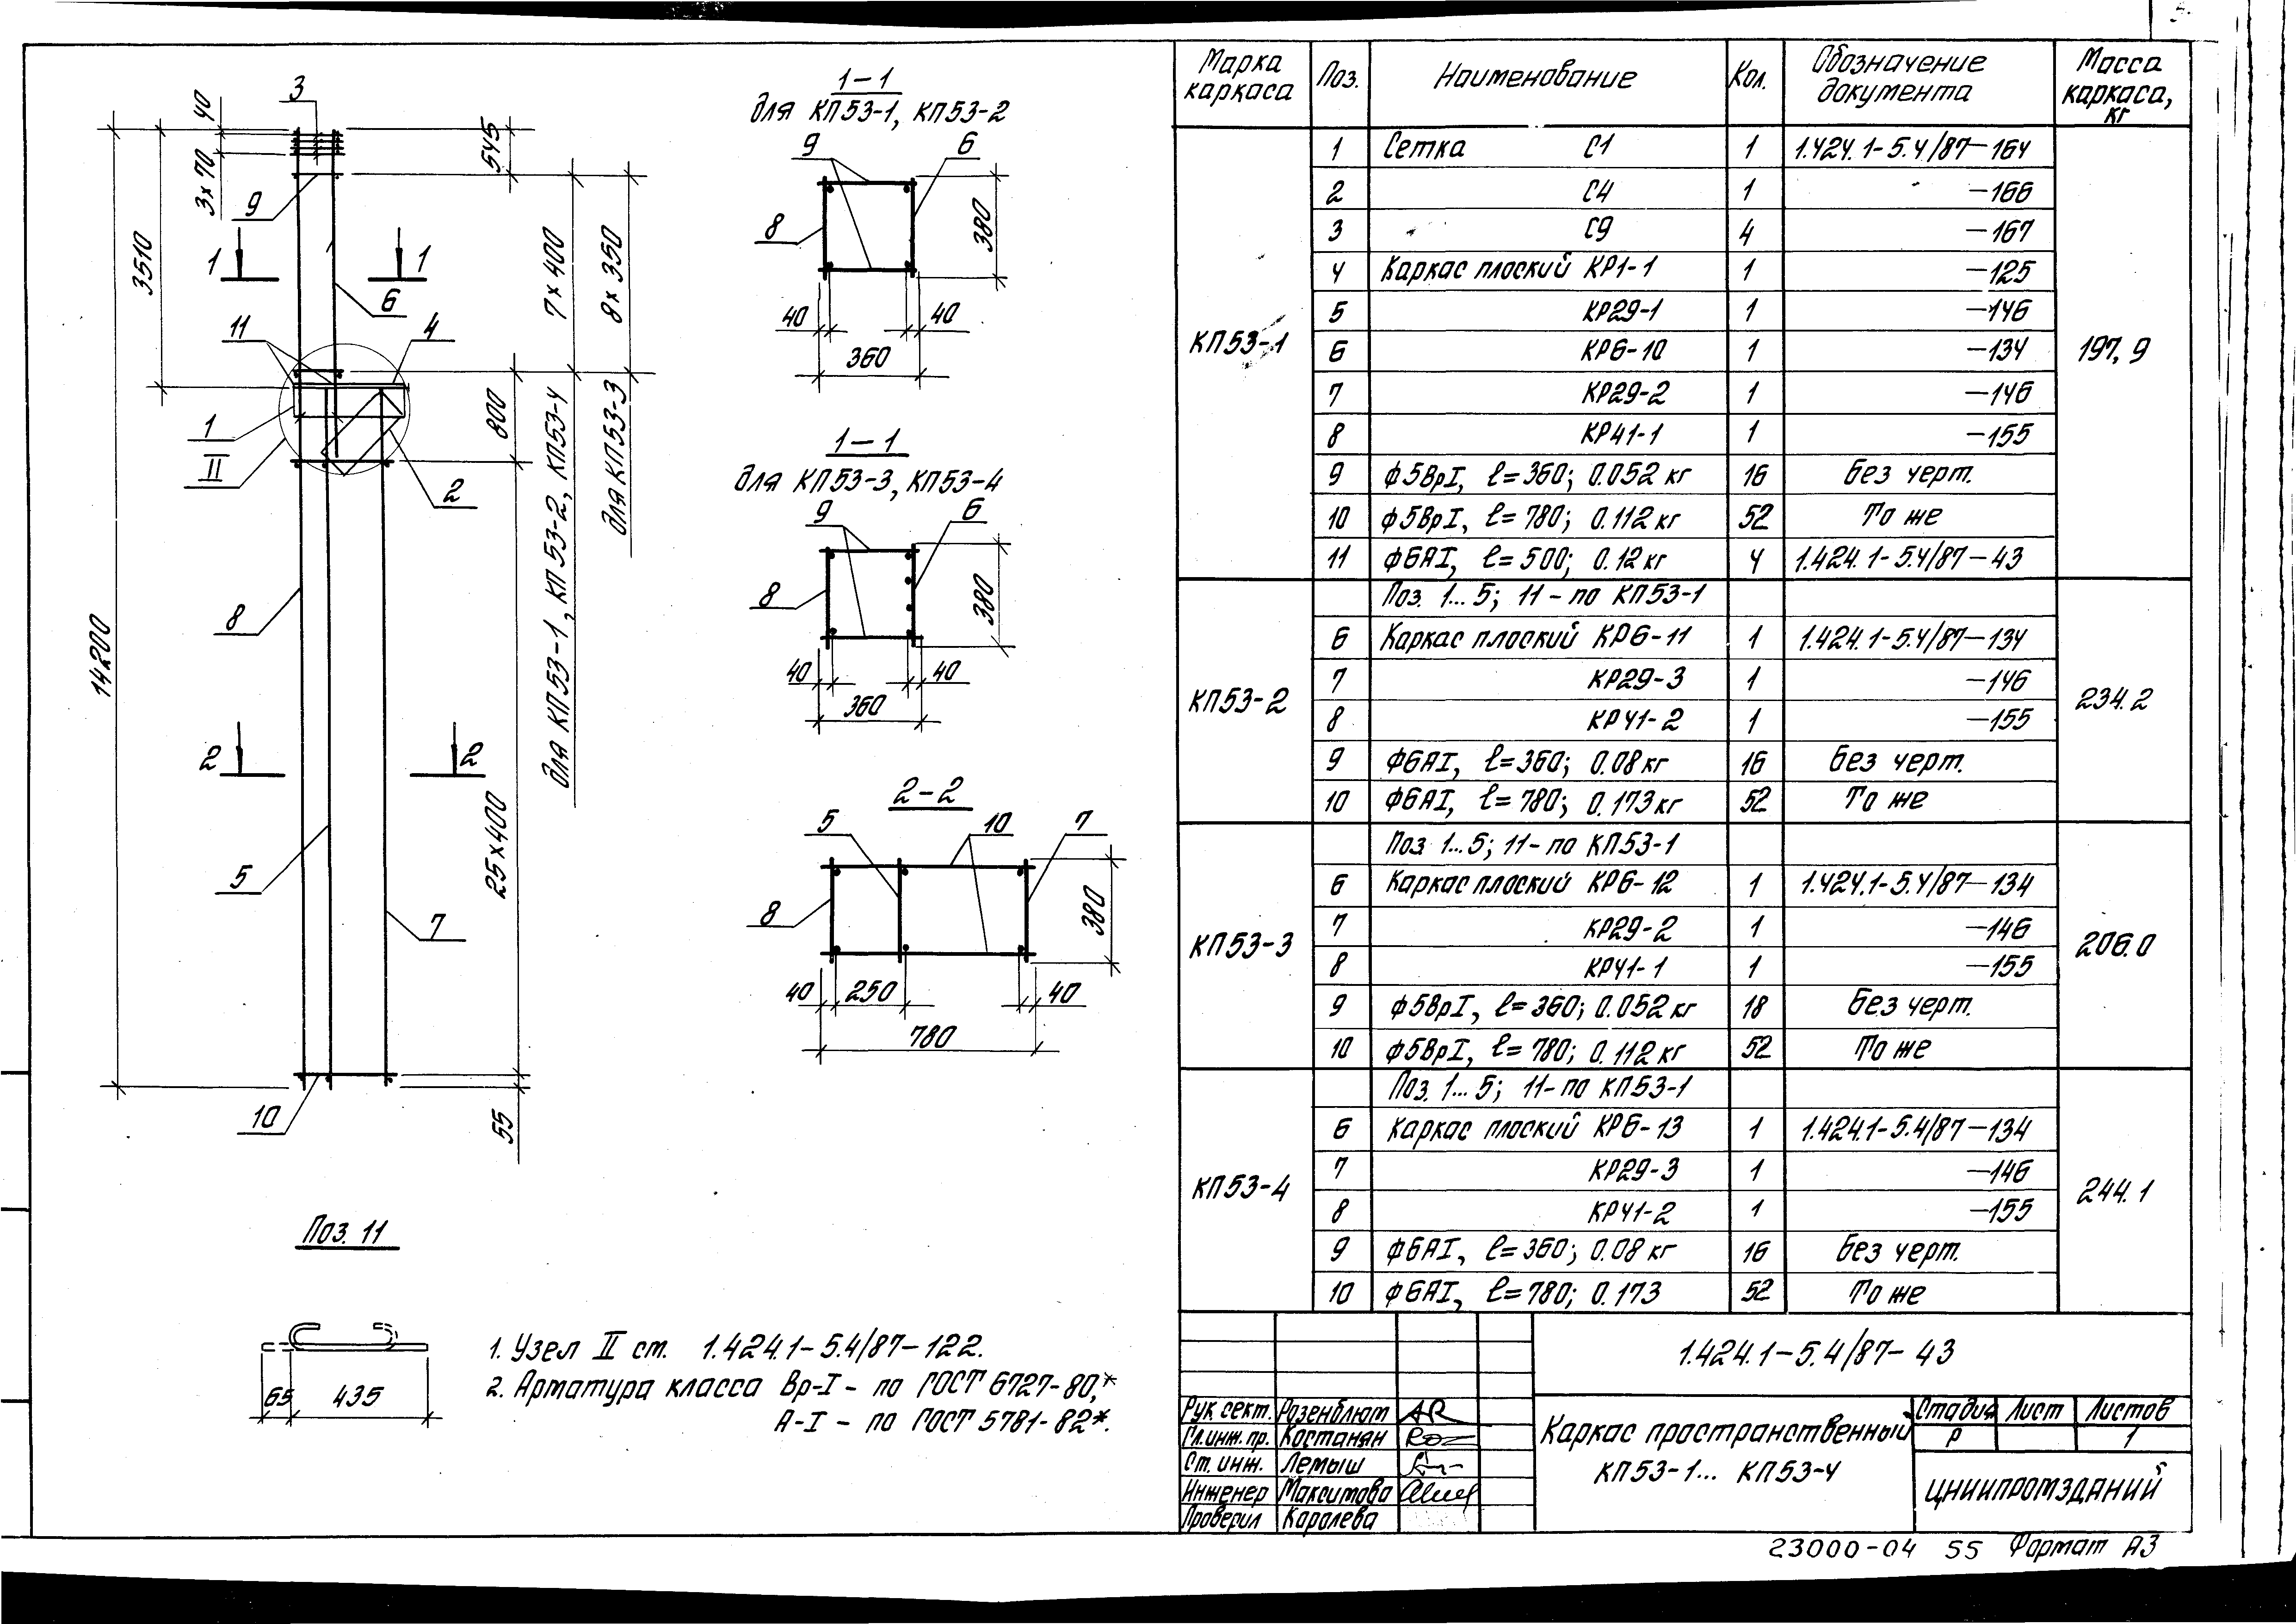 3
40
3×70
545
9
1 1
3510
6
7×400
8×350
11 4
1
II
800
2
для КП53-1, КП53-2, КП53-4
для КП53-3
8
14200
2 2
5
25×400
7
10
55
1-1
для КП53-1, КП53-2
9 6
8
380
40 40
360
1-1
для КП53-3, КП53-4
9 6
8
380
40 40
360
2-2
5 10 7
8
380
40 250 40
780
Поз. 11
65 435
1. Узел II см. 1.424.1-5.4/87-122.
2. Арматура класса Вр-I - по ГОСТ 6727-80,*
А-I - по ГОСТ 5781-82*.
Марка каркаса Поз. Наименование Кол. Обозначение документа Масса каркаса, кг
КП53-1 197,9
1 Сетка С1 1 1.424.1-5.4/87-164
2 С4 1 -166
3 С9 4 -167
4 Каркас плоский КР1-1 1 -125
5 КР29-1 1 -146
6 КР6-10 1 -134
7 КР29-2 1 -146
8 КР41-1 1 -155
9 ф5ВрI, ℓ=360; 0.052 кг 16 без черт.
10 ф5ВрI, ℓ=780; 0.112 кг 52 То же
11 ф6АI, ℓ=500; 0.12 кг 4 1.424.1-5.4/87-43
КП53-2 234.2
Поз. 1...5; 11-по КП53-1
6 Каркас плоский КР6-11 1 1.424.1-5.4/87-134
7 КР29-3 1 -146
8 КР41-2 1 -155
9 ф6АI, ℓ=360; 0.08 кг 16 без черт.
10 ф6АI, ℓ=780; 0.173 кг 52 То же
КП53-3 206.0
Поз 1...5; 11-по КП53-1
6 Каркас плоский КР6-12 1 1.424.1-5.4/87-134
7 КР29-2 1 -146
8 КР41-1 1 -155
9 ф5ВрI, ℓ=360; 0.052 кг 18 без черт.
10 ф5ВрI, ℓ=780; 0.112 кг 52 То же
КП53-4 244.1
Поз. 1...5; 11-по КП53-1
6 Каркас плоский КР6-13 1 1.424.1-5.4/87-134
7 КР29-3 1 -146
8 КР41-2 1 -155
9 ф6АI, ℓ=360; 0.08 кг 16 без черт.
10 ф6АI, ℓ=780; 0.173 52 То же
1.424.1-5.4/87-43
Рук сект. Розенблюм
Гл.инж. пр. Костанян
Ст. инж. Лемыш
Инженер Максимова
Проверил Каралева
Каркас пространственный
КП53-1... КП53-4
Стадия Лист Листов
Р 1
ЦНИИПРОМЗДАНИЙ
23000-04 55 Формат А3